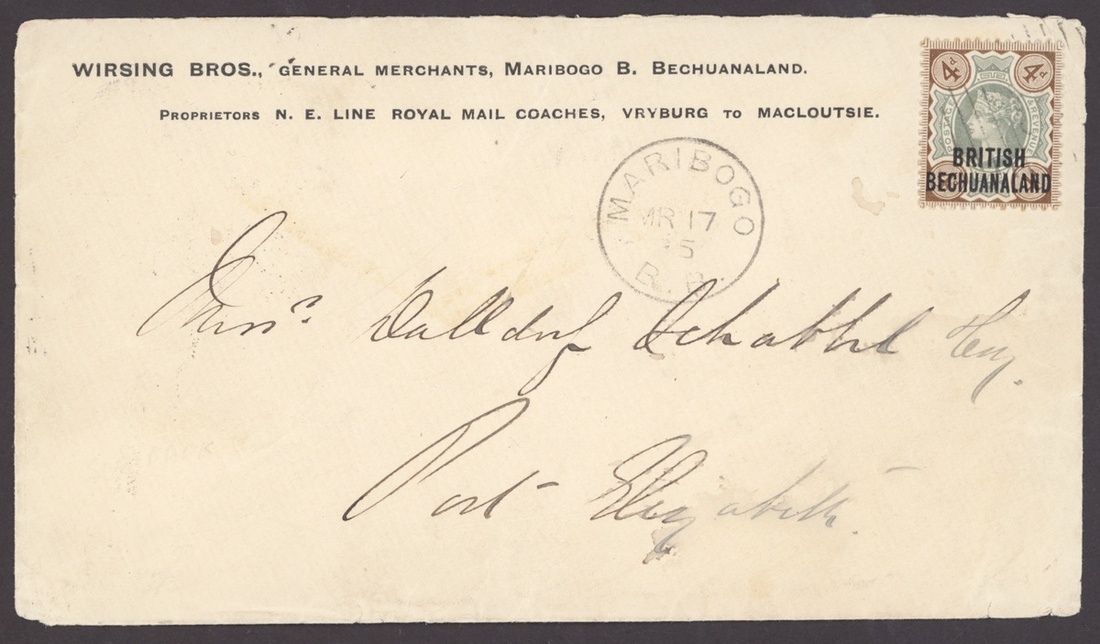 WIRSING BROS., GENERAL MERCHANTS, MARIBOGO B. BECHUANALAND.
PROPRIETORS N. E. LINE ROYAL MAIL COACHES, VRYBURG TO MACLOUTSIE.
4d 4d
POSTAGE & REVENUE
BRITISH
BECHUANALAND
MARIBOGO
MR 17
5
B. B
Messrs. Dalldorf Schabbel
Port Elizabeth